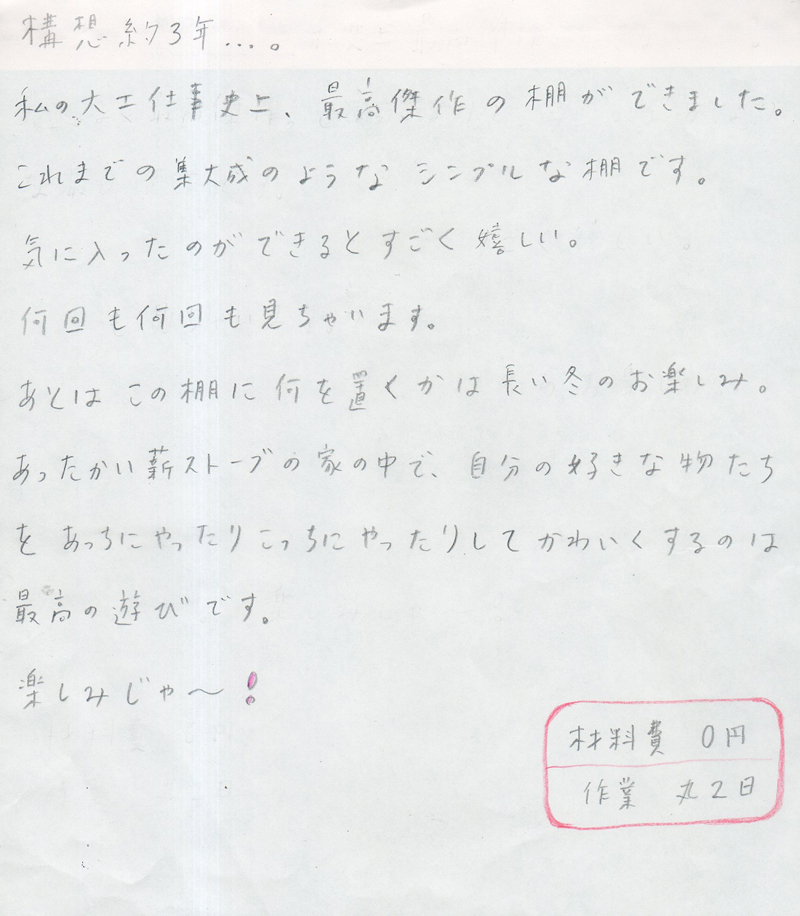 構想約3年…。
私の大工仕事史上、最高傑作の棚ができました。
これまでの集大成のようなシンプルな棚です。
気に入ったのができるとすごく嬉しい。
何回も何回も見ちゃいます。
あとはこの棚に何を置くかは長い冬のお楽しみ。
あったかい薪ストーブの家の中で、自分の好きな物たち
をあっちにやったりこっちにやったりしてかわいくするのは
最高の遊びです。
楽しみじゃ〜!
材料費 0円
作業 丸2日